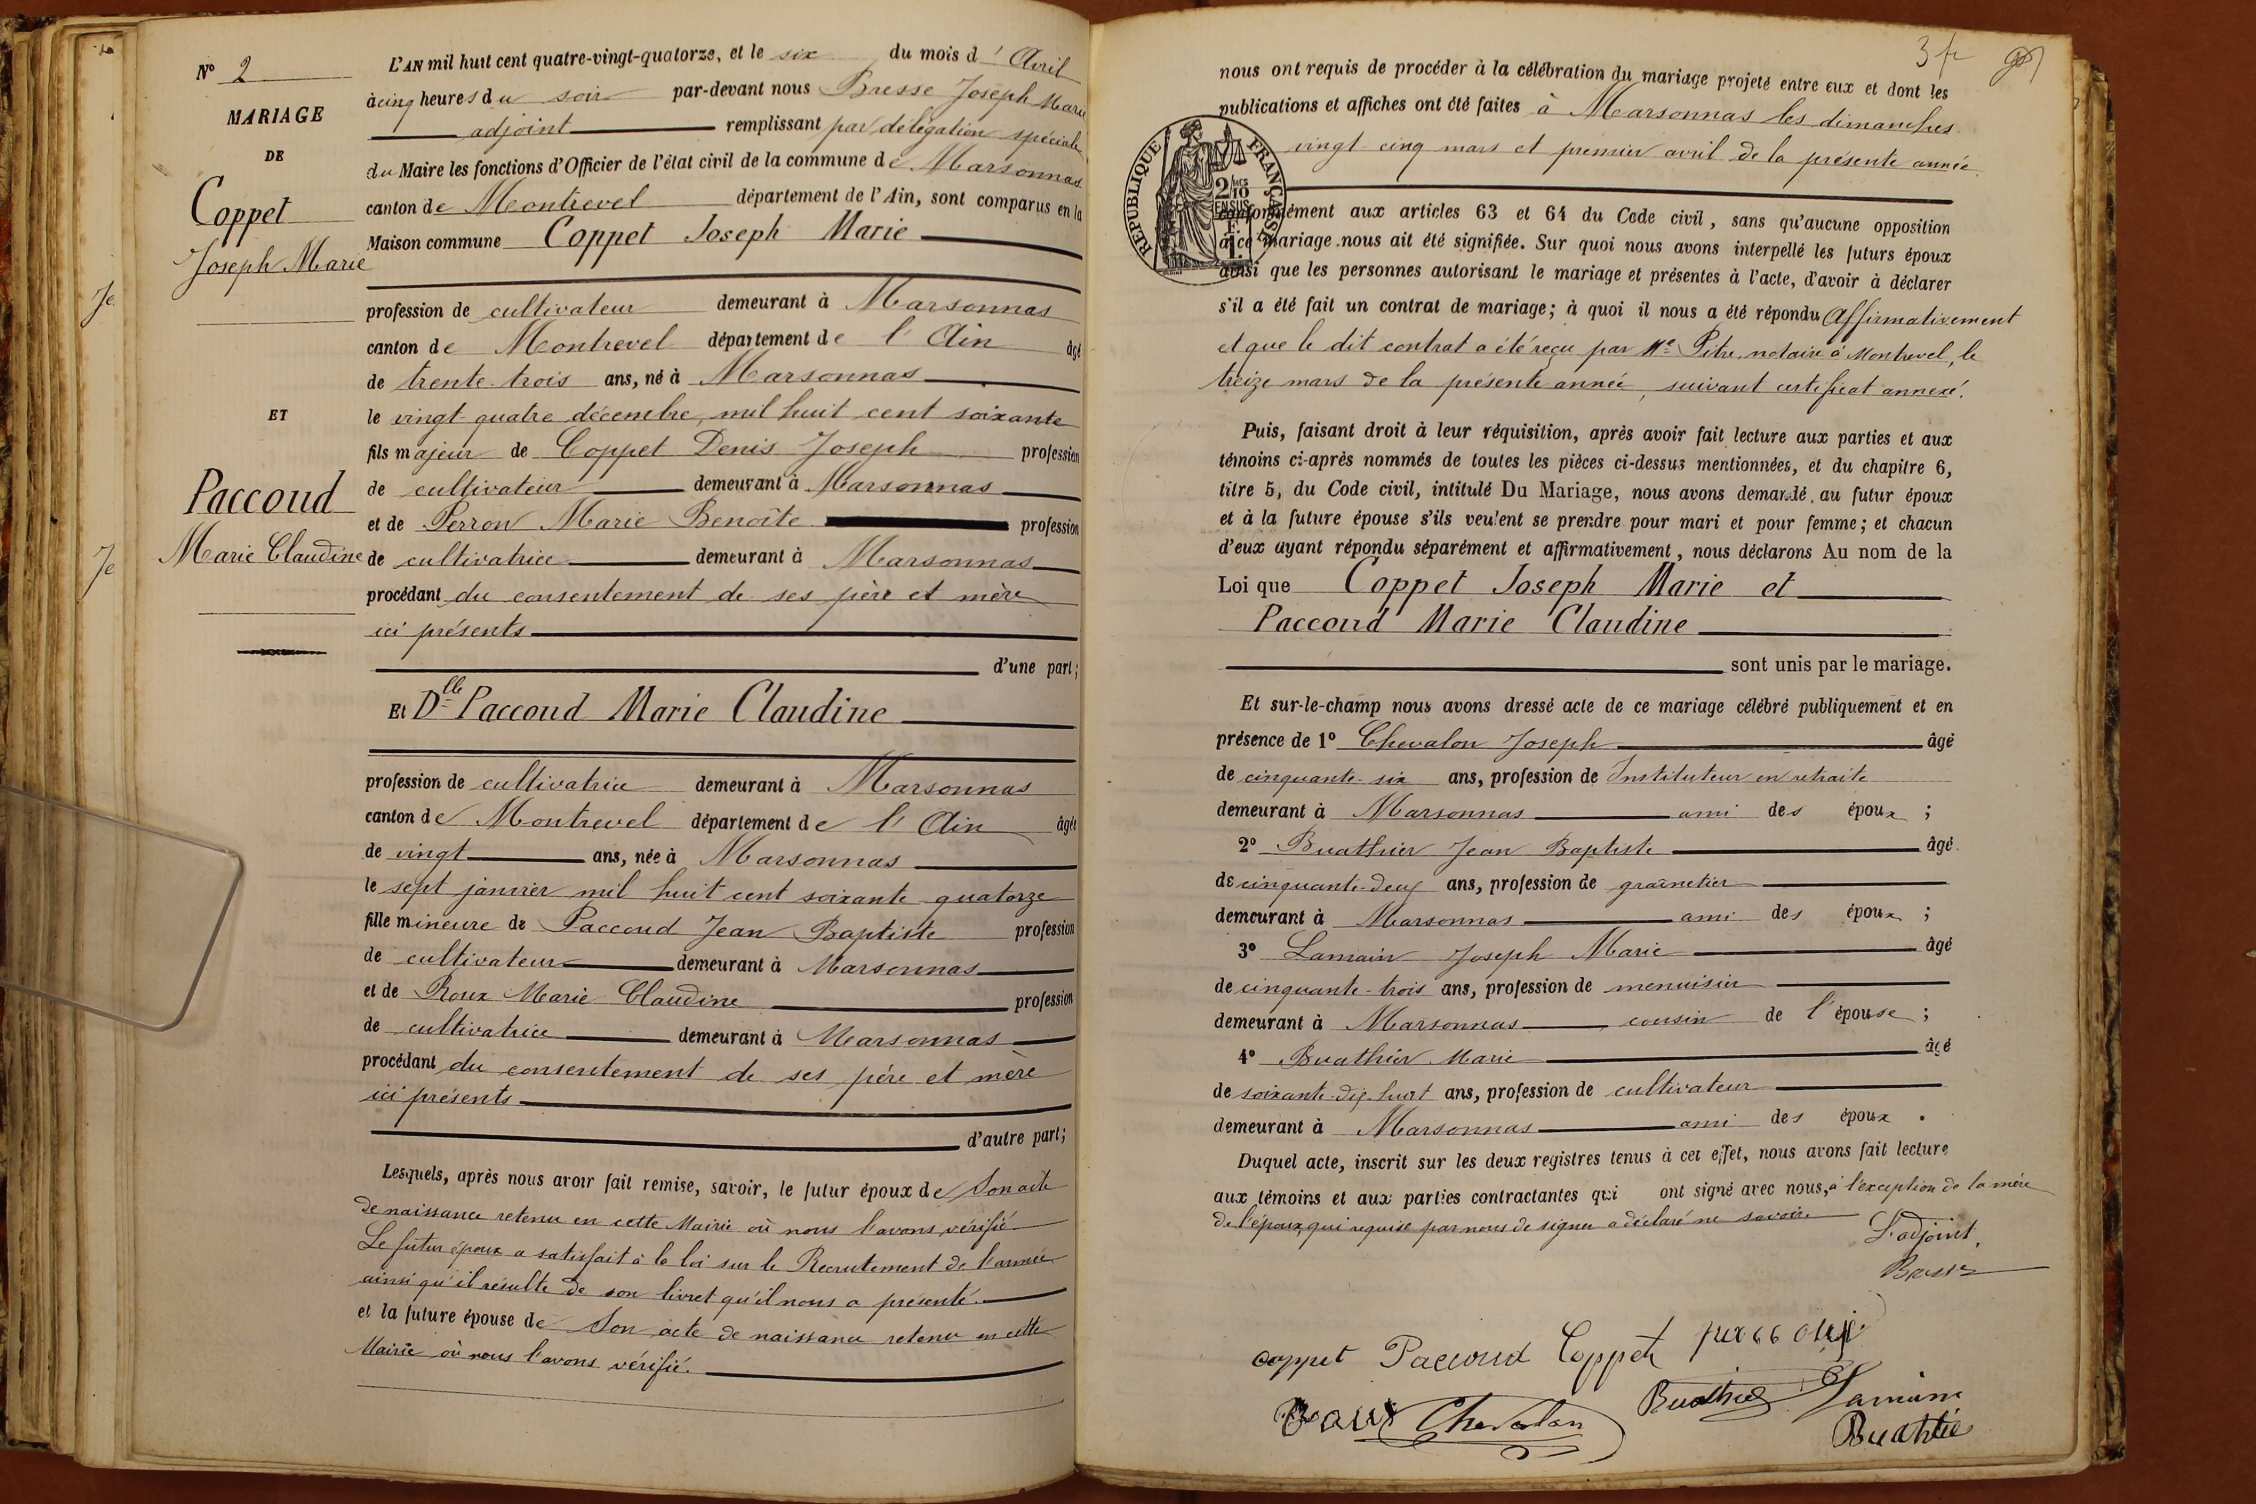 Nº 2
MARIAGE
DE
Coppet
Joseph Marie
ET
Paccoud
Marie Claudine
L'AN mil huit cent quatre-vingt-quatorze, et le six du mois d'Avril
à cinq heures du soir par-devant nous Bresse Joseph Marie
adjoint remplissant par délégation spéciale
du Maire les fonctions d'Officier de l'état civil de la commune de Marsonnas
canton de Montrevel département de l'Ain, sont comparus en la
Maison commune Coppet Joseph Marie
profession de cultivateur demeurant à Marsonnas
canton de Montrevel département de l'Ain âgé
de trente-trois ans, né à Marsonnas
le vingt-quatre décembre, mil huit cent soixante
fils majeur de Coppet Denis Joseph profession
de cultivateur demeurant à Marsonnas
et de Perron Marie Benoîte profession
de cultivatrice demeurant à Marsonnas
procédant du consentement de ses père et mère
ici présents
d'une part;
Et Dlle Paccoud Marie Claudine
profession de cultivatrice demeurant à Marsonnas
canton de Montrevel département de l'Ain âgée
de vingt ans, née à Marsonnas
le sept janvier mil huit cent soixante quatorze
fille mineure de Paccoud Jean Baptiste profession
de cultivateur demeurant à Marsonnas
et de Roux Marie Claudine profession
de cultivatrice demeurant à Marsonnas
procédant du consentement de ses père et mère
ici présents
d'autre part;
Lesquels, après nous avoir fait remise, savoir, le futur époux de Son acte
de naissance retenu en cette Mairie où nous l'avons vérifié
Le futur époux a satisfait à la loi sur le Recrutement de l'armée
ainsi qu'il résulte de son livret qu'il nous a présenté.
et la future épouse de Son acte de naissance retenu en cette
Mairie où nous l'avons vérifié.
3 fr
nous ont requis de procéder à la célébration du mariage projeté entre eux et dont les
publications et affiches ont été faites à Marsonnas les dimanches
vingt-cinq mars et premier avril de la présente année.
REPUBLIQUE FRANÇAISE
conformément aux articles 63 et 64 du Code civil, sans qu'aucune opposition
à ce mariage nous ait été signifiée. Sur quoi nous avons interpellé les futurs époux
ainsi que les personnes autorisant le mariage et présentes à l'acte, d'avoir à déclarer
s'il a été fait un contrat de mariage; à quoi il nous a été répondu Affirmativement
et que le dit contrat a été reçu par Me Pitre, notaire à Montrevel, le
treize mars de la présente année, suivant certificat annexé.
Puis, faisant droit à leur réquisition, après avoir fait lecture aux parties et aux
témoins ci-après nommés de toutes les pièces ci-dessus mentionnées, et du chapitre 6,
titre 5, du Code civil, intitulé Du Mariage, nous avons demandé au futur époux
et à la future épouse s'ils veulent se prendre pour mari et pour femme; et chacun
d'eux ayant répondu séparément et affirmativement, nous déclarons Au nom de la
Loi que Coppet Joseph Marie et
Paccoud Marie Claudine
sont unis par le mariage.
Et sur-le-champ nous avons dressé acte de ce mariage célébré publiquement et en
présence de 1º Chevalon Joseph âgé
de cinquante-six ans, profession de Instituteur en retraite
demeurant à Marsonnas ami des époux;
2º Buathier Jean Baptiste âgé
de cinquante-deux ans, profession de grainetier
demeurant à Marsonnas ami des époux;
3º Lamain Joseph Marie âgé
de cinquante-trois ans, profession de menuisier
demeurant à Marsonnas cousin de l'épouse;
4º Buathier Marie âgé
de soixante-dix-huit ans, profession de cultivateur
demeurant à Marsonnas ami des époux.
Duquel acte, inscrit sur les deux registres tenus à cet effet, nous avons fait lecture
aux témoins et aux parties contractantes qui ont signé avec nous, à l'exception de la mère
de l'époux, qui requise par nous de signer a déclaré ne savoir.
L'adjoint,
Bresse
coppet Paccoud Coppet
Roux Chevalon Buathier Lamain
Buathie